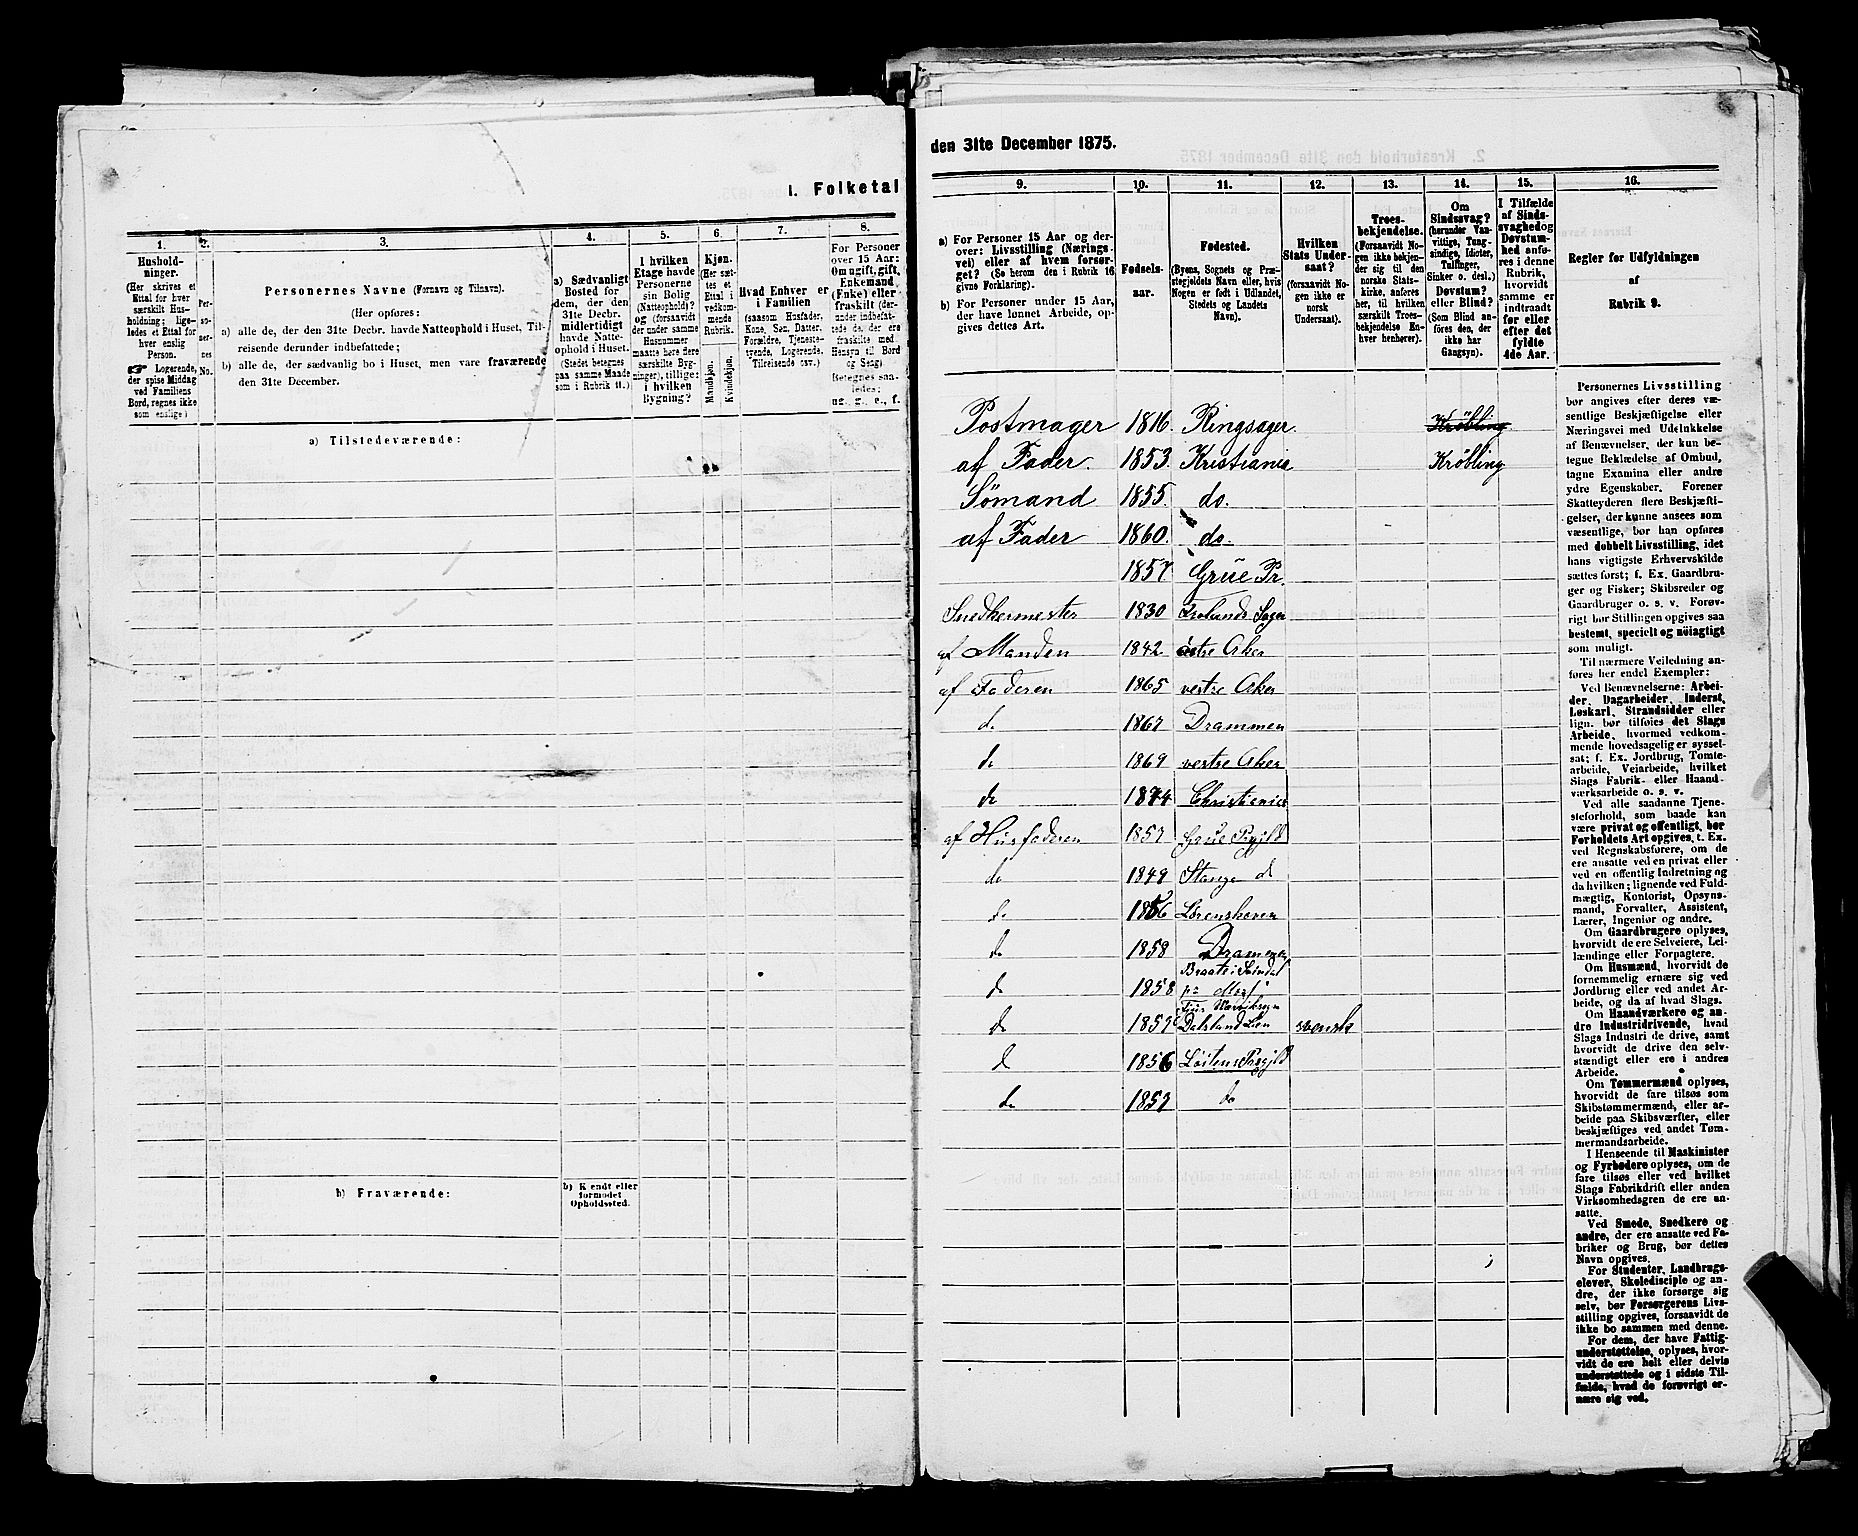 I. Folketal
1. 2. 3. 4. 5. 6. 7. 8.
Hushold-
ninger.
(Her skrives et
Ettal for hver
særskilt Hus-
holdning; lige-
ledes et Ettal for
hver enslig
Person.
☞ Logerende,
der spise Middag
ved Familiens
Bord, regnes ikke
som enslige)
Per-
so-
ner-
nes
No.
Personernes Navne (Fornavn og Tilnavn).
(Her opføres:
a) alle de, der den 31te Decbr. havde Natteophold i Huset, Til-
reisende derunder indbefattede;
b) alle de, der sædvanlig bo i Huset, men vare fraværende
den 31te December.
a) Sædvanligt
Bosted for
dem, der den
31te Decbr.
midlertidigt
havde Natte-
ophold i Huset.
(Stedet betegnes
paa samme Maade
som i Rubrik 11.)
I hvilken
Etage havde
Personerne
sin Bolig
(Natteophold)?
og (forsaavidt
der under samme
Husnummer
maatte høre flere
særskilte Byg-
ninger), tillige:
i hvilken
Bygning?
Kjøn.
(Her sæt-
tes et
Ettal i
vedkom-
mende
Rubrik.
Mandkjøn.
Kvindekjøn.
Hvad Enhver er
i Familien
(saasom Husfader,
Kone, Søn, Datter,
Forældre, Tjeneste-
tyende, Logerende,
Tilreisende osv.).
For Personer
over 15 Aar:
Om ugift, gift,
Enkemand
(Enke) eller
fraskilt (der-
under indbefatte-
de de, der ere
fraskilte med
Hensyn til Bord
og Seng)
Betegnes saa-
ledes:
ug., g., e., f.
a) Tilstedeværende:
b) Fraværende:
b) Kjendt eller
formodet
Opholdssted.
den 31te December 1875.
9. 10. 11. 12. 13. 14. 15. 16.
a) For Personer 15 Aar og der-
over: Livsstilling (Nærings-
vei) eller af hvem forsør-
get? (Se herom den i Rubrik 16
givne Forklaring).
b) For Personer under 15 Aar,
der have lønnet Arbeide, op-
gives dettes Art.
Fødsels-
aar.
Fødested.
(Byens, Sognets og Præ-
stegjeldets Navn, eller, hvis
Nogen er født i Udlandet,
Stedets og Landets
Navn).
Hvilken
Stats Under-
saat?
(forsaavidt No-
gen ikke er
norsk
Undersaat).
Troes-
bekjendelse.
(Forsaavidt No-
gen ikke bekjen-
der sig til den
norske Stats-
kirke, anføres
her, til hvilken
særskilt Troes-
bekjendelse En-
hver henhører).
Om
Sindssvag?
(herunder Van-
vittige, Tung-
sindige, Idioter,
Tullinger,
Sinker o. desl.)
Døvstum?
eller Blind?
(Som Blind an-
føres den, der
ikke har
Gangsyn).
I Tilfælde
af Sinds-
svaghed og
Døvstum-
hed anfø-
res i denne
Rubrik,
hvorvidt
samme er
indtraadt
før eller
efter det
fyldte
4de Aar.
Regler for Udfyldningen
af
Rubrik 9.
Postmager 1816. Ringsager. Krøbling
af Fader. 1853. Kristiania Krøbling
Sømand 1855. do.
af Fader 1860. do.
1857. Grue Pr.
Snedkermester 1830
af Manden 1842 østre Aker
af Faderen 1865 vestre Aker
d. 1867 Drammen
do 1869 vestre Aker
do 1874 Christiania
af Husfaderen 1857 Grue Prgjld
do 1849 Stange d
do Lørenskoven
do 1858 Drammen
d 1858
do svensk
d 1856 Løitens Prgjld
do 1857 do
Personernes Livsstilling
bør angives efter deres væ-
sentlige Beskjæftigelse eller
Næringsvei med Udelukkelse
af Benævnelser, der kun be-
tegne Beklædelse af Ombud,
tagne Examina eller andre
ydre Egenskaber. Forener
Skatteyderen flere Beskjæfti-
gelser, der kunne ansees som
væsentlige, bør han opføres
med dobbelt Livsstilling, idet
hans vigtigste Erhvervskilde
sættes først; f. Ex. Gaardbru-
ger og Fisker; Skibsreder og
Gaardbruger o. s. v. Forøv-
rigt bør Stillingen opgives saa
bestemt, specielt og nøiagtigt
som muligt.
Til nærmere Veiledning an-
føres her endel Exempler:
Ved Benævnelserne: Arbei-
der, Dagarbeider, Inderst,
Løskarl, Strandsidder eller
lign. bør tilføies det Slags
Arbeide, hvormed vedkom-
mende hovedsagelig er syssel-
sat; f. Ex. Jordbrug, Tomte-
arbeide, Veiarbeide, hvilket
Slags Fabrik- eller Haand-
værksarbeide o. s. v.
Ved alle saadanne Tjene-
steforhold, som baade kan
være privat og offentligt, bør
Forholdets Art opgives, t. Ex.
ved Regnskabsførere, om de
ere ansatte ved en privat eller
ved en offentlig Indretning og
da hvilken; lignende ved Fuld-
mægtig, Kontorist, Opsyns-
mand, Forvalter, Assistent,
Lærer, Ingeniør og andre.
Om Gaardbrugere oplyses,
hvorvidt de ere Selveiere, Lei-
lændinge eller Forpagtere.
Om Husmænd, hvorvidt de
fornemmelig ernære sig ved
Jordbrug eller ved andet Ar-
beide, og da af hvad Slags.
Om Haandværkere og an-
dre Industridrivende, hvad
Slags Industri de drive, samt
hvorvidt de drive den selv-
stændigt eller ere i andres
Arbeide.
Om Tømmermænd oplyses,
hvorvidt de fare tilsøs som
Skibstømmermænd, eller ar-
beide paa Skibsværfter, eller
beskjæftiges ved andet Tøm-
mermandsarbeide.
I Henseende til Maskinister
og Fyrbødere oplyses, om de
fare tilsøs eller ved hvilket
Slags Fabrikdrift eller anden
Virksomhedsgren de ere an-
satte.
Ved Smede, Snedkere og
andre, der ere ansatte ved Fa-
briker og Brug, bør dettes
Navn opgives.
For Studenter, Landbrugs-
elever, Skoledisciple og an-
dre, der ikke forsørge sig
selv, bør Forsørgerens Livs-
stilling opgives, forsaavidt de
ikke bo sammen med denne.
For dem, der have Fattig-
understøttelse, oplyses, hvor-
vidt de ere helt eller delvis
understøttede og i sidste Til-
fælde, hvad de forøvrigt er-
nære sig ved.